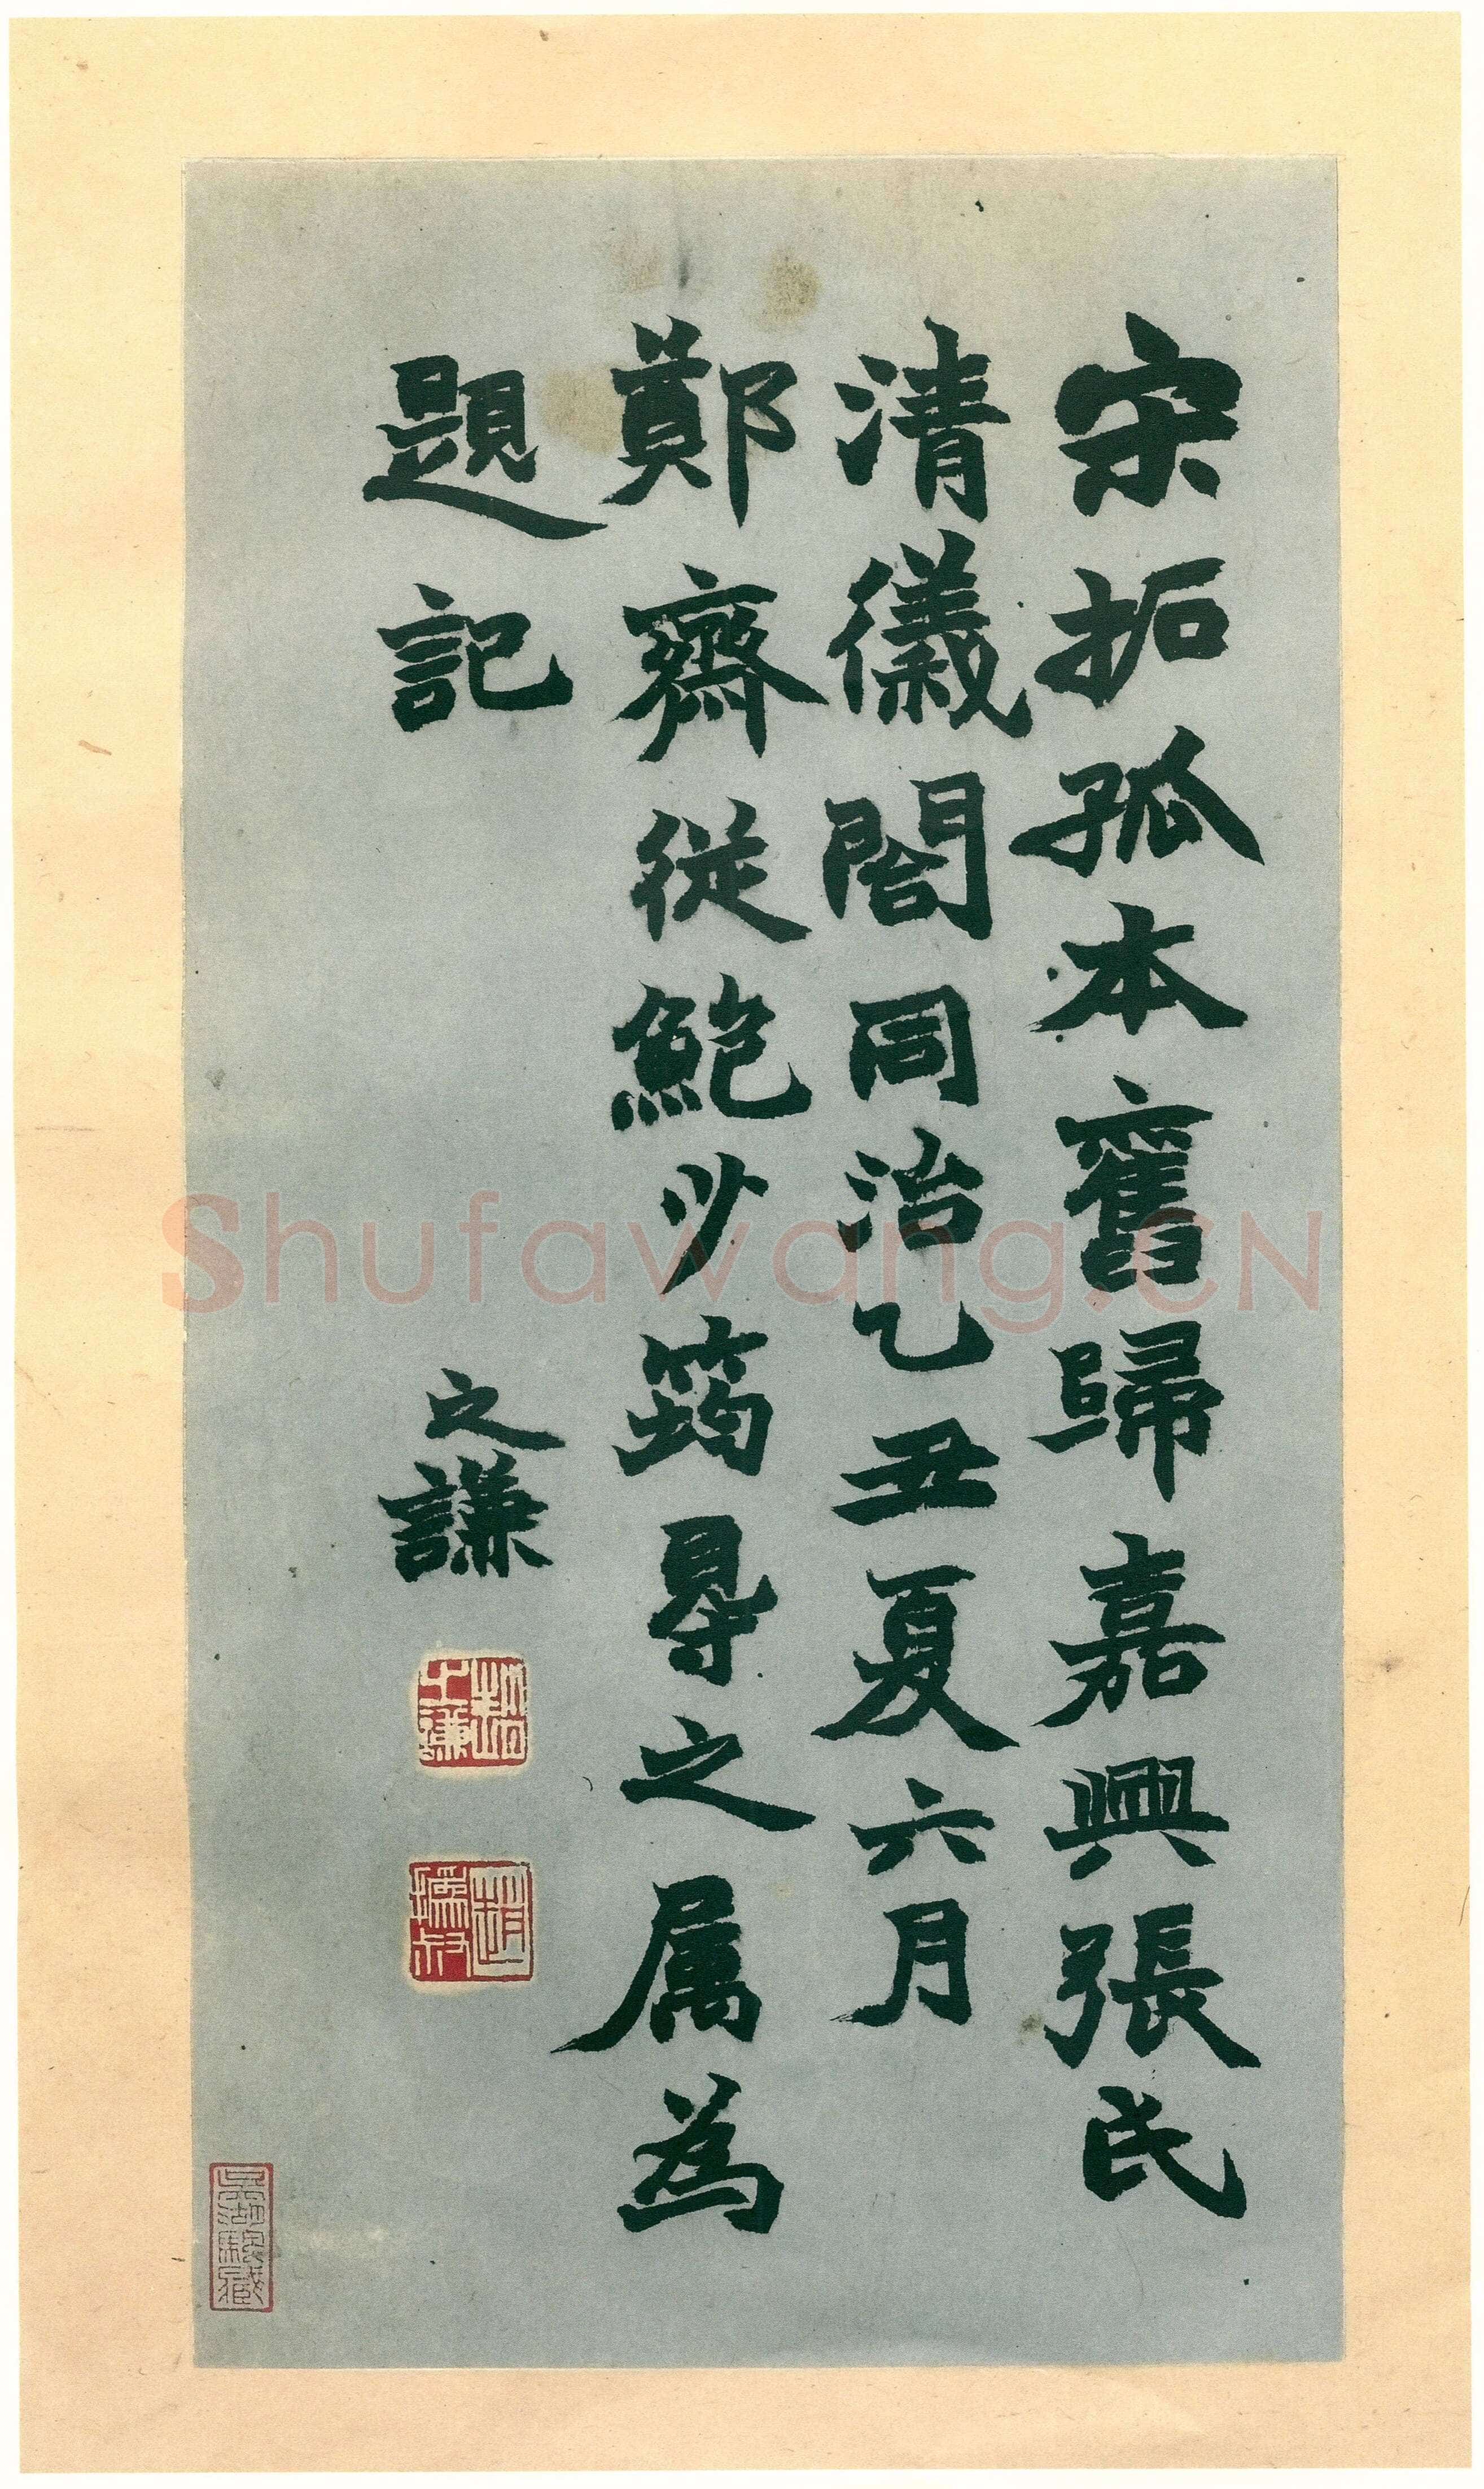 宋拓孤本舊歸嘉興張氏
清儀閣同治乙丑夏六月
鄭齋從鮑少筠㝵之属為
題記
之謙
趙之謙
趙撝叔
吳湖颿藏
Shufawang.CN